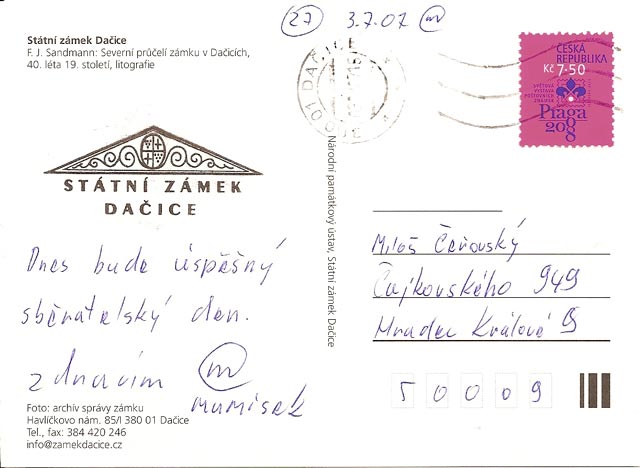 27 3.7.07 m
Státní zámek Dačice
F. J. Sandmann: Severní průčelí zámku v Dačicích,
40. léta 19. století, litografie
380 01 DAČICE
ČESKÁ
REPUBLIKA
Kč 7·50
SVĚTOVÁ
VÝSTAVA
POŠTOVNÍCH
ZNÁMEK
Praga
2008
STÁTNÍ ZÁMEK
DAČICE
Národní památkový ústav, Státní zámek Dačice
Dnes bude úspěšný
sběratelský den.
zdravím m
mumisek
Miloš Čeřovský
Čajkovského 949
Hradec Králové 9
50009
Foto: archív správy zámku
Havlíčkovo nám. 85/I 380 01 Dačice
Tel., fax: 384 420 246
info@zamekdacice.cz